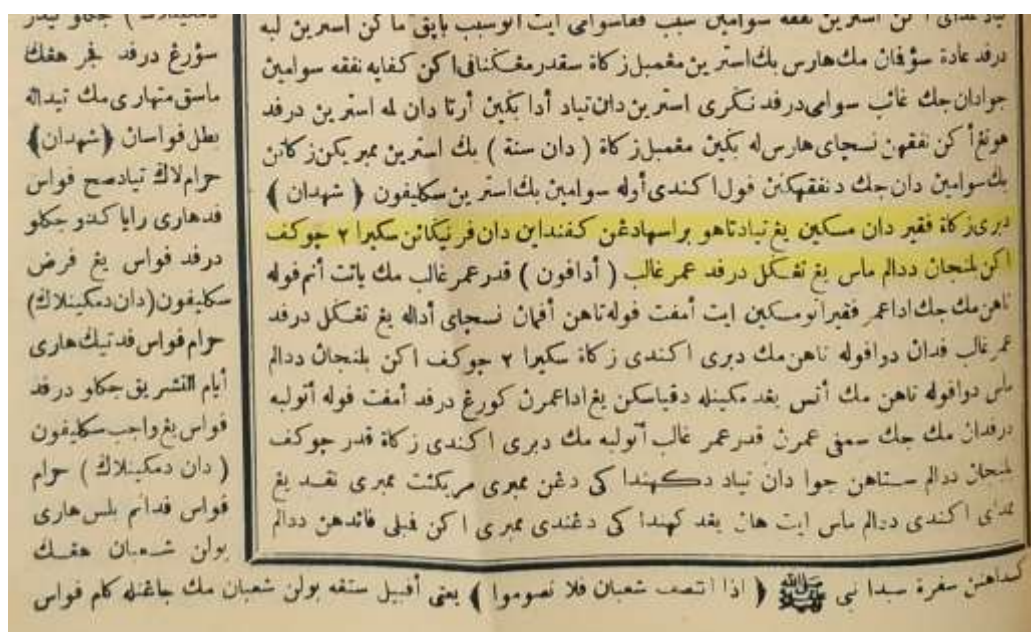 درفد عادة سؤفان مك هارس بك استرين مغمبل زكاة سقدر مڠكنافى اكن كفايه نفقه سوامين
جوادان جك غائب سوامى درفد نكرى استرين دان تياد ادا بكين أرتا دان له استرين درفد
هوتڠ أكن نفقهن نسچاى هارس له بكين مغمبل زكاة ( دان سنة ) بك استرين ممبريكن زكاتن
بك سوامين دان جك دنفقهكنن فول اكندى أوله سوامين بك استرين سكليفون ﴿ شهدان ﴾
دبرى زكاة فقير دان مسكين يڠ تياد تاهو براسها دڠن كفنداين دان فرنيكائن سكيرا ٢ چوكف
اكن بلنجان ددالم ماس يڠ تڠكل درفد عمر غالب ( أدافون ) قدر عمر غالب مك يائت أنم فوله
تاهن مك جك ادا عمر فقير اتو مسكين ايت أمفت فوله تاهن أفمان نسچاى أداله يڠ تڠكل درفد
عمر غالب فدان دوا فوله تاهن مك دبرى اكندى زكاة سكيرا ٢ چوكف اكن بلنجان ددالم
ماس دوا فوله تاهن مك أتس يڠد مكينله دقياسكن يڠ ادا عمرن كورڠ درفد أمفت فوله أتوليه
درفدان مك جك سمفى عمرن قدر عمر غالب أتوليه مك دبرى اكندى زكاة قدر چوكف
بلنجان ددالم ستاهن جوا دان تياد دكهندا كى دڠن ممبرى مريكئت ممبرى نقد يڠ
ممداى اكندى ددالم ماس ايت هان يڠد كهندا كى دڠندى ممبرى اكن فبلى فائدهن ددالم
سؤرڠ درفد فجر هڠك
ماسق متهارى مك تيداله
بطل فواسان ﴿شهدان﴾
حراملاڬ تياد صح فواس
فد هارى راياكدو جكلو
درفد فواس يڠ فرض
سكليفون (دان دمكينلاڬ)
حرام فواس فد تيڬ هارى
أيام التشريق جكلو درفد
فواس يڠ واجب سكليفون
( دان دمكينلاڬ ) حرام
فواس فد أنم بلس هارى
بولن شعبان هڠك
سبدا نبى ﷺ ﴿ اذا انتصف شعبان فلا تصوموا ﴾ يعنى أفبيل ستڠه بولن شعبان مك جاڠنله كام فواس